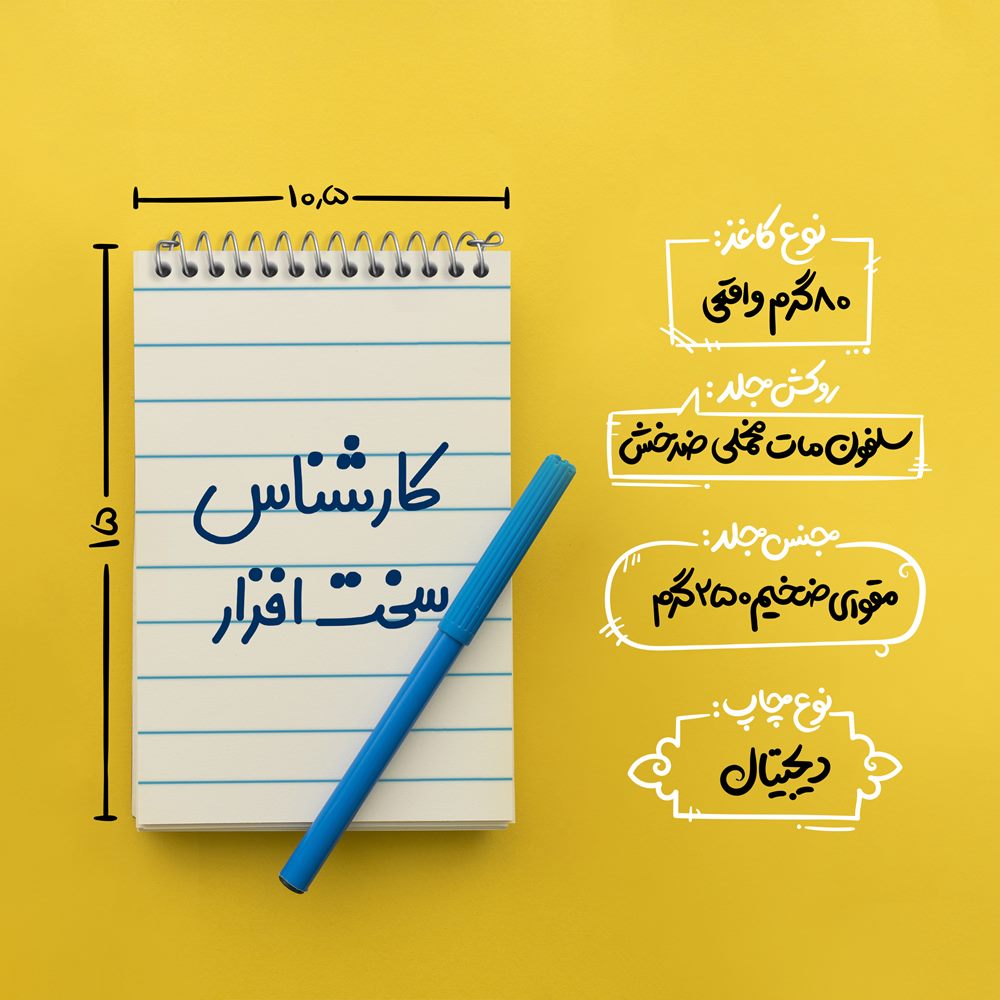 ۱۰٫۵
۱۵
کارشناس
سخت افزار
نوع کاغذ:
۸۰گرم واقعی
روکش جلد:
سلفون مات مخملی ضدخش
جنس جلد:
مقوای ضخیم ۲۵۰گرم
نوع چاپ:
دیجیتال